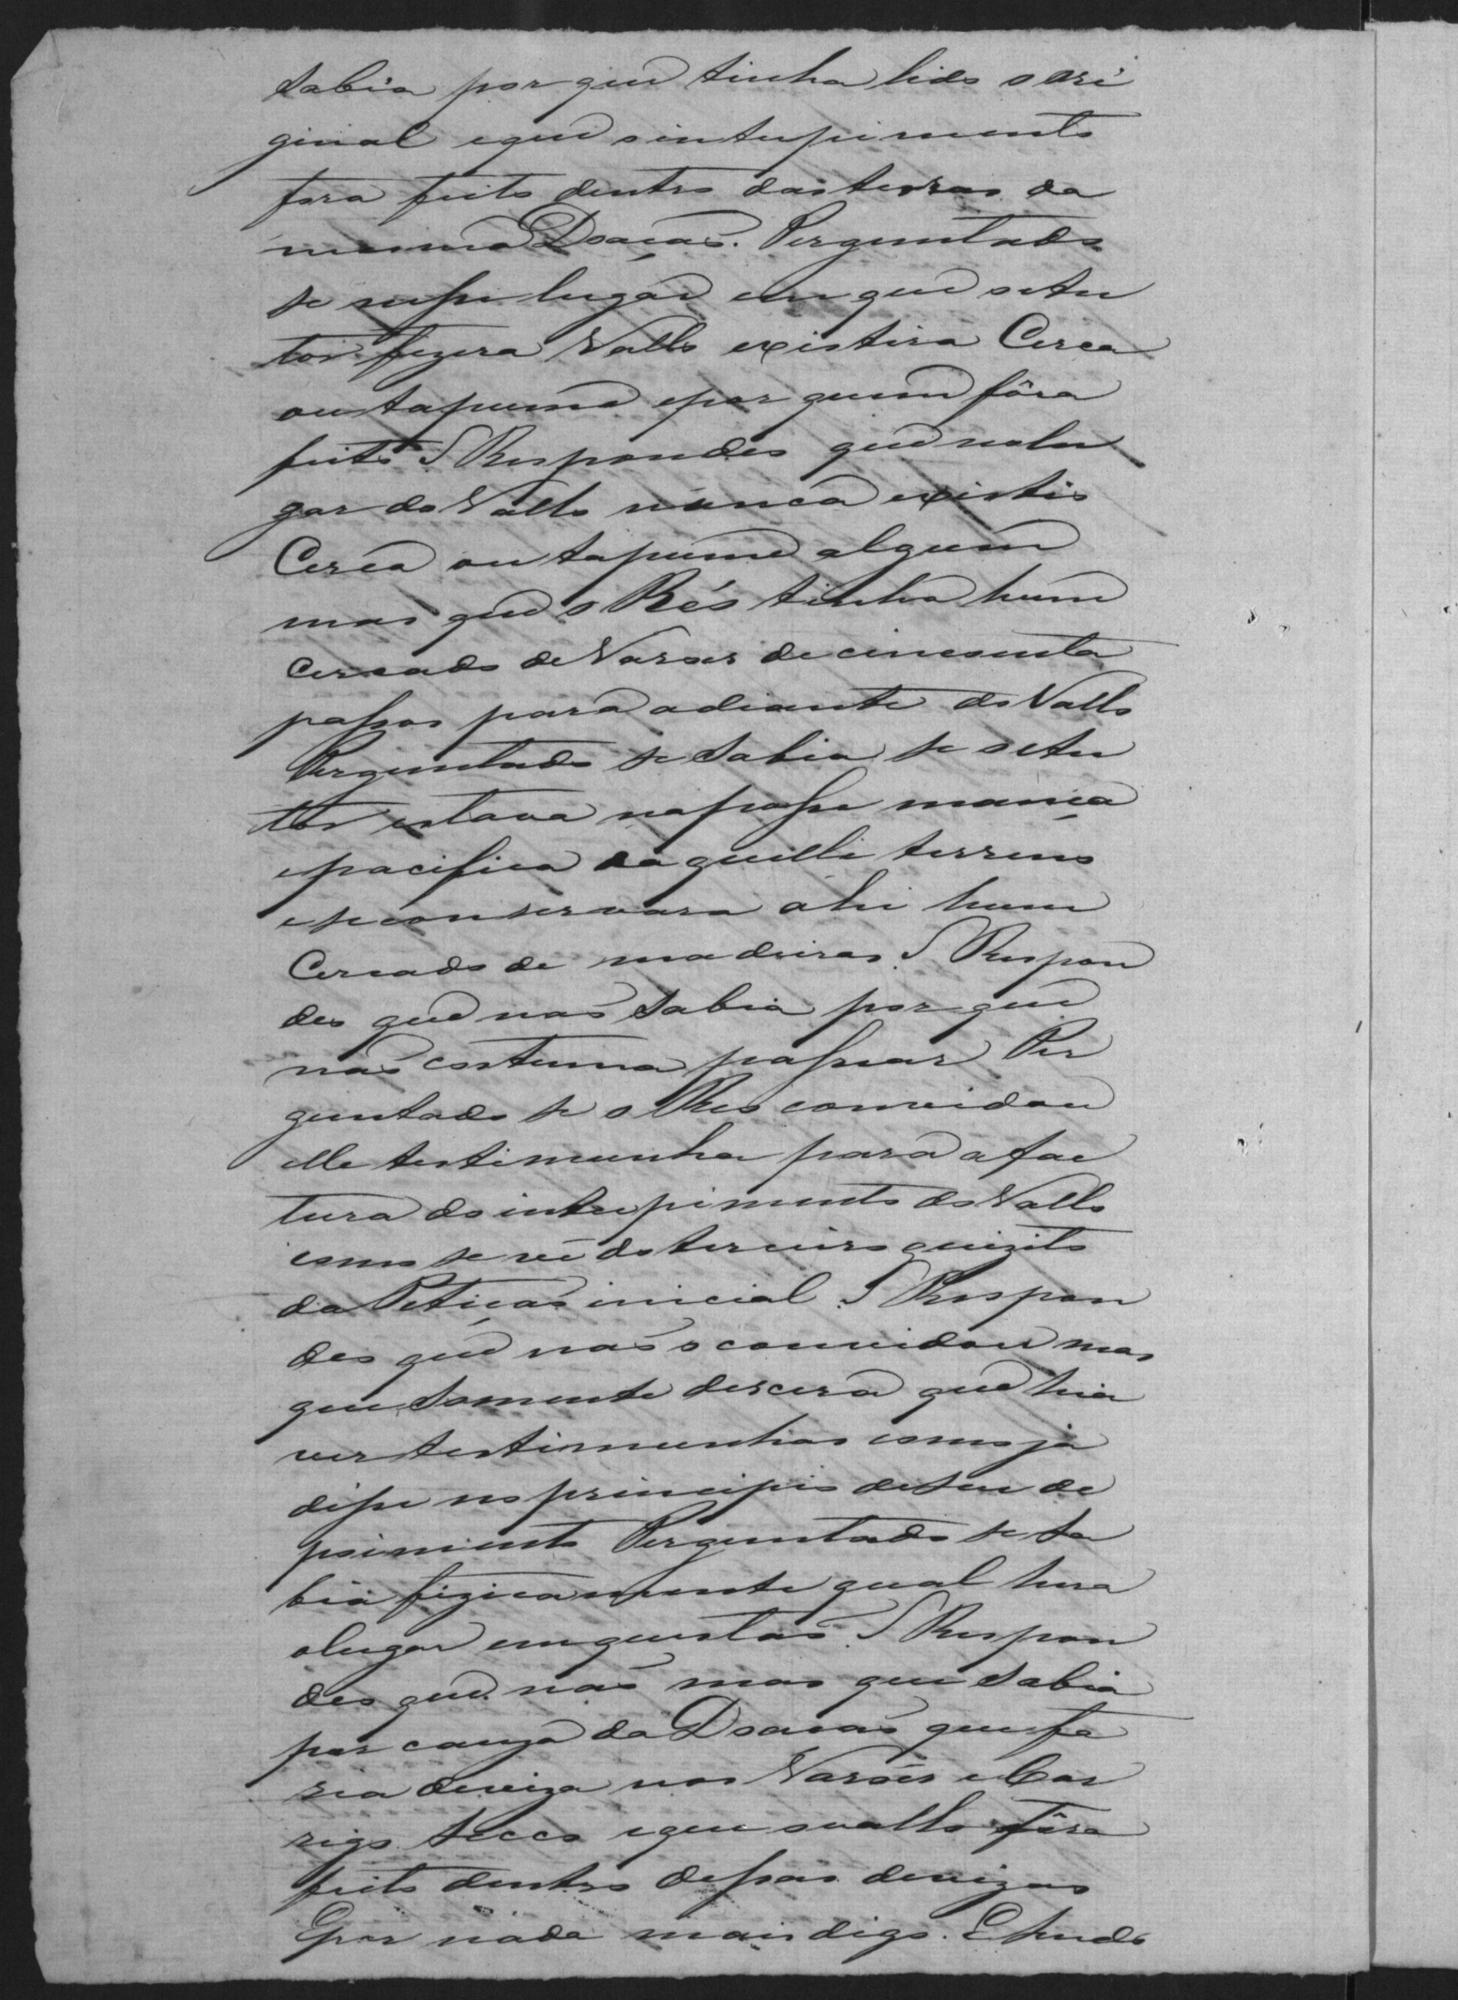 sabia por que tinha lido o ori
ginal e que o intupimento
fora feito dentro das terras da
mesma Doação. Perguntado
se nesse lugar em que o Au
tor fizera Vallo existira Cerca
ou tapume e por quem fôra
feito? Respondeo que no lu
gar do Vallo nunca existio
Cerca ou tapume algum
mas que o Réo tinha hum
cercado de Varas de cincoenta
passos para adiante do Vallo
Perguntado se sabia se o Au
tor estava na posse mança
e pacifica daquelle terreno
e se conservara ahi hum
Cercado de madeiras? Respon
deo que não sabia por que
não costuma passear Per
guntado se o Reo convidou
elle testimunha para a fac
tura do intupimento do Vallo
como se vê do terceiro quizito
da Petição inicial? Respon
deo que não o convidou mas
que somente dicera que hia
ver testimunhas como já
disse no principio de seu de
poimento Perguntado se sa
bia fizicamente qual hera
o lugar em questão? Respon
deo que não mas que sabia
por cauza da Doação que fa
zia deviza nos Varões e Cor
rigo secco e que o vallo fôra
feito dentro dessas devizas
E por nada mais digo. E sendo